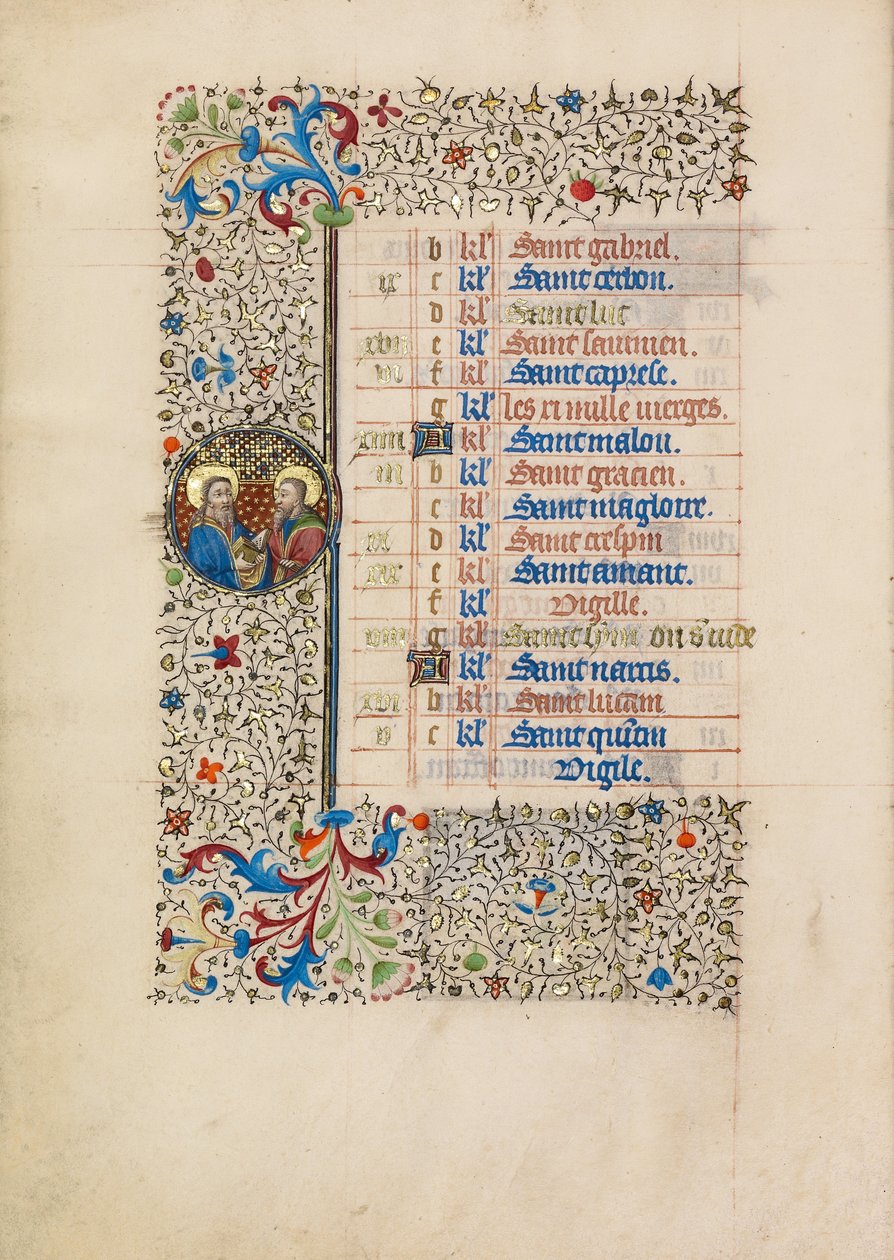 b kl' Saint gabriel.
ix c kl' Saint cerbon.
d kl' Saint luc
xvii e kl' Saint sauinien.
vi f kl' Saint caprese.
g kl' les xi mille uierges.
xiiii A kl' Saint malou.
iii b kl' Saint gracien.
c kl' Saint magloire.
xi d kl' Saint crespin
xix e kl' Saint amant.
f kl' Vigille.
viii g kl' Saint
A kl' Saint narcis.
xvi b kl' Saint lucain
v c kl' Saint quĩtin
Vigile.